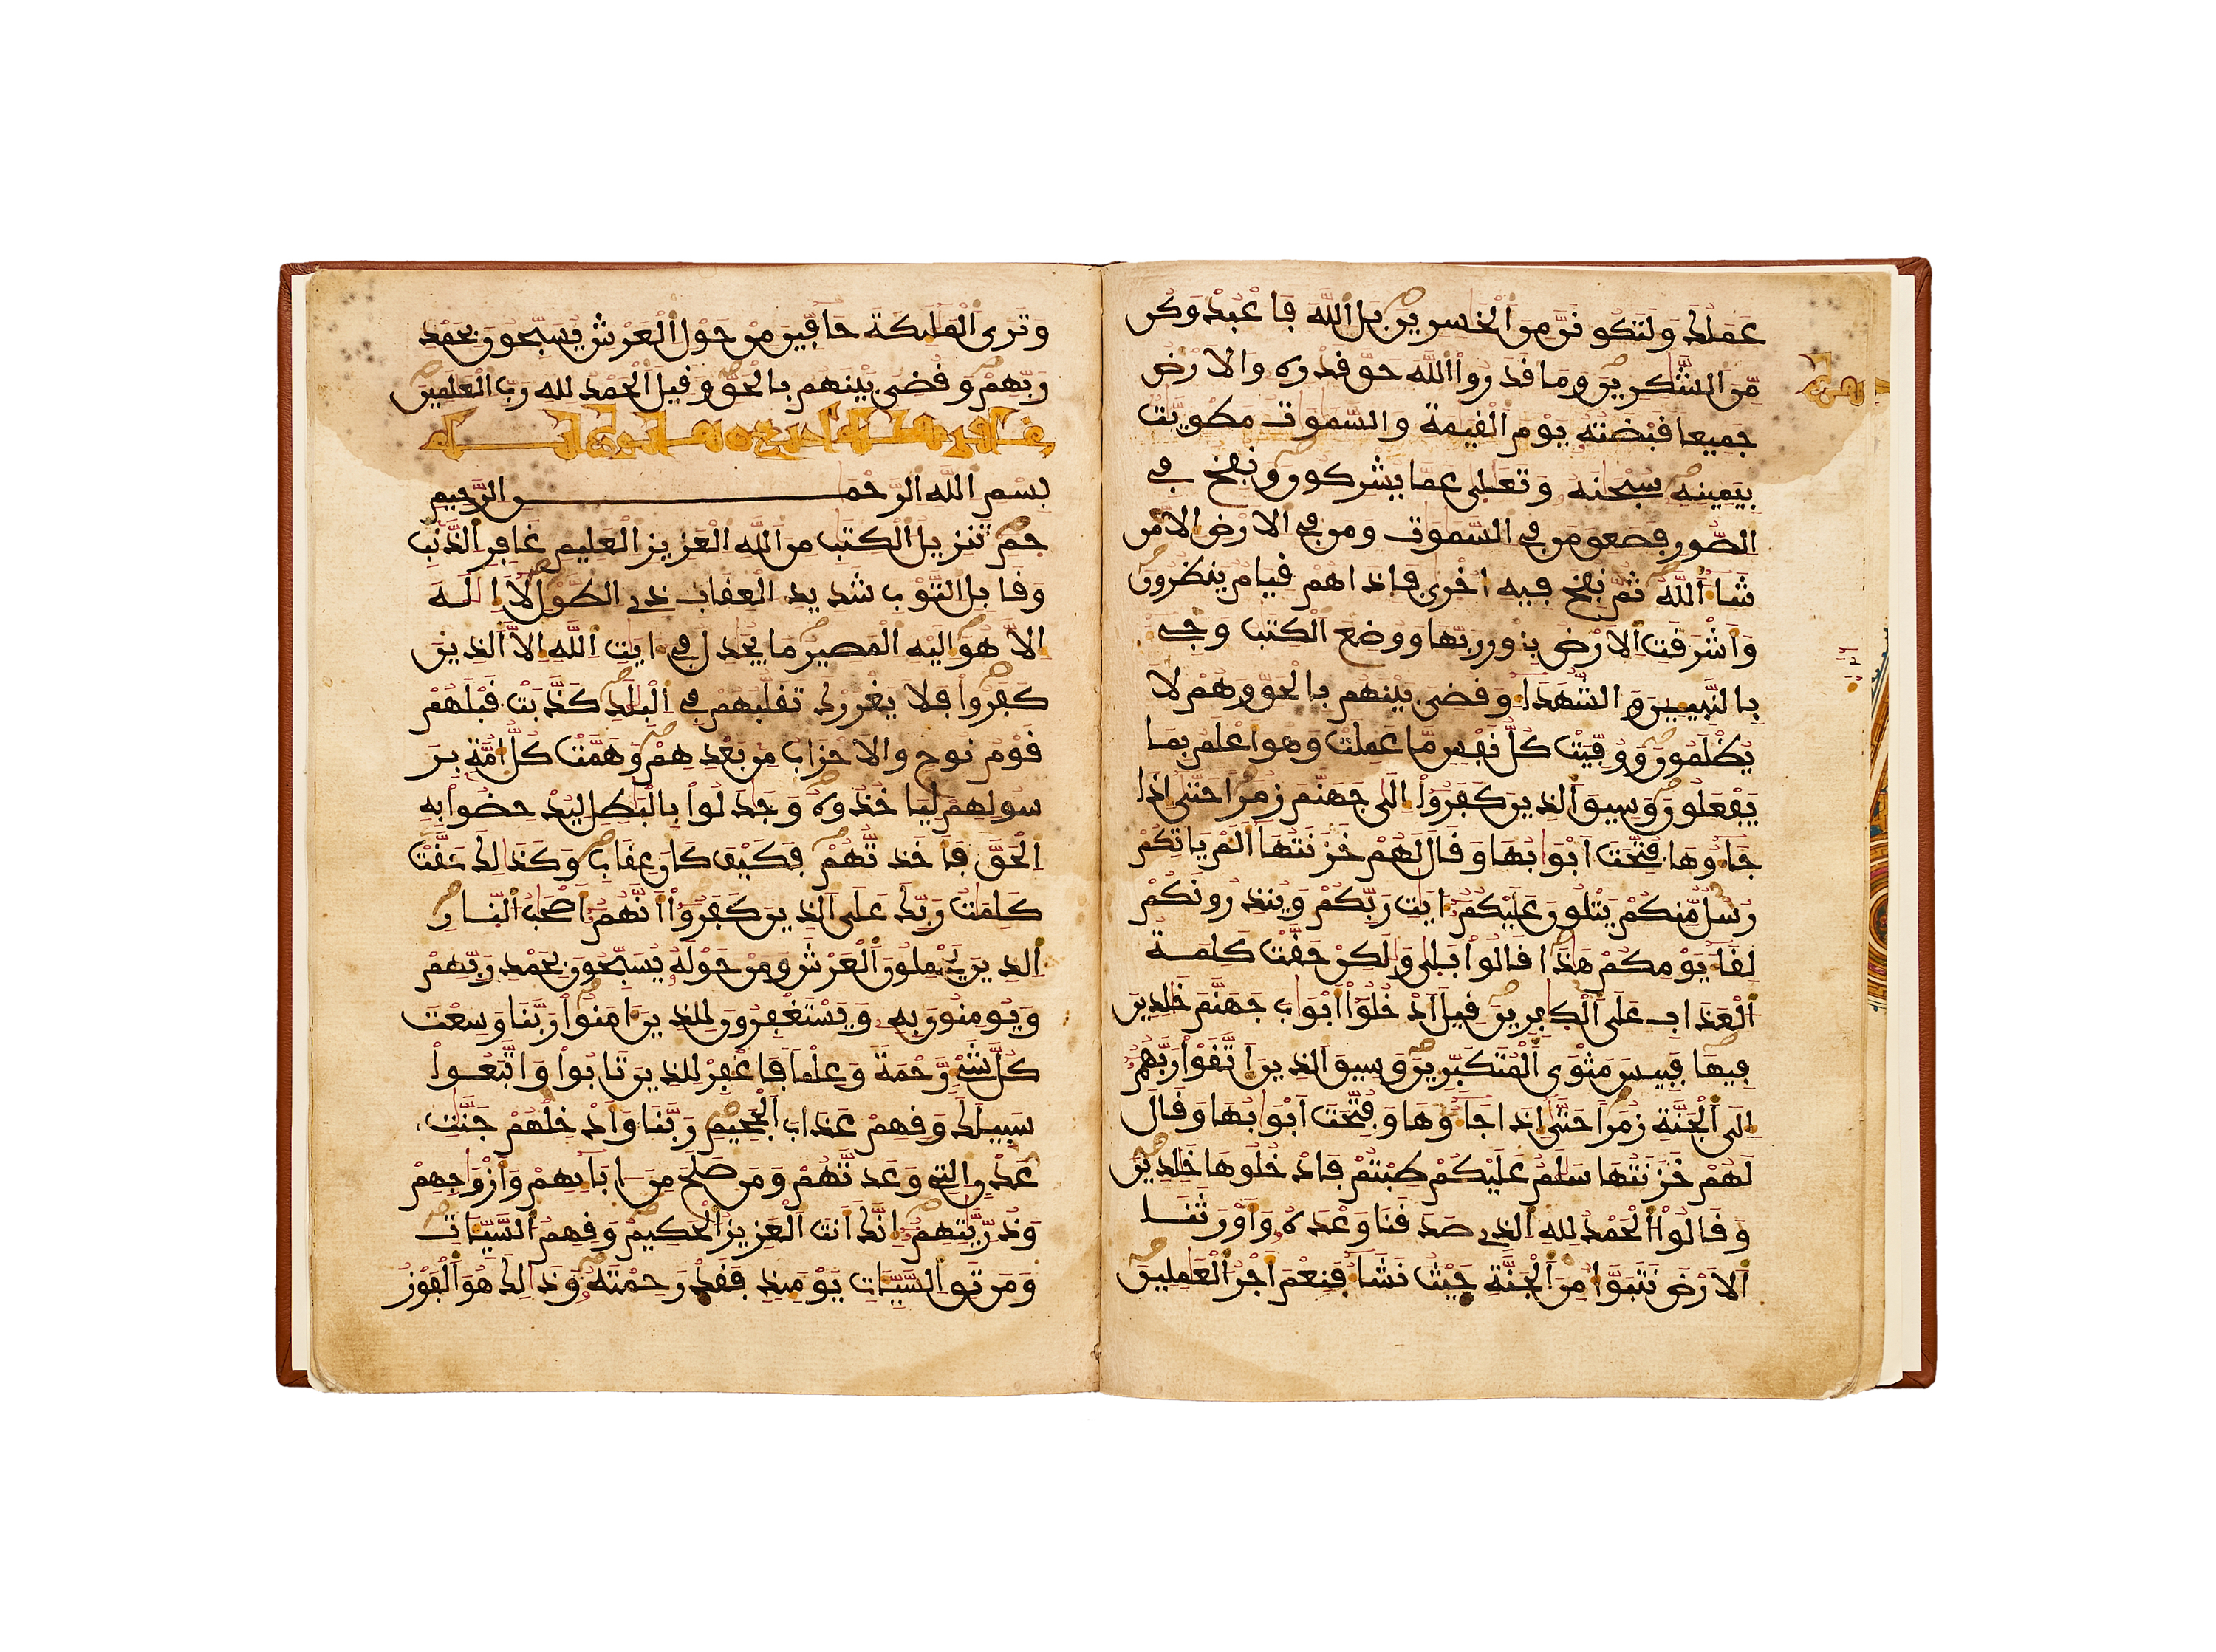 عملك ولتكونن من الخسرين بل الله فاعبد وكن
من الشكرين وما قدروا الله حق قدره والارض
جميعا قبضته يوم القيمة والسموت مطويت
بيمينه سبحنه وتعلى عما يشركون ونفخ في
الصور فصعق من في السموت ومن في الارض الا من
شا الله ثم نفخ فيه اخرى فاذا هم قيام ينظرون
واشرقت الارض بنور ربها ووضع الكتب وجي
بالنبيين والشهدا وقضى بينهم بالحق وهم لا
يظلمون ووفيت كل نفس ما عملت وهو اعلم بما
يفعلون وسيق الذين كفروا الى جهنم زمرا حتى اذا
جاوها فتحت ابوابها وقال لهم خزنتها الم ياتكم
رسل منكم يتلون عليكم ايت ربكم وينذرونكم
لقا يومكم هذا قالوا بلى ولكن حقت كلمة
العذاب على الكافرين قيل ادخلوا ابواب جهنم خلدين
فيها فبيس مثوى المتكبرين وسيق الذين اتقوا ربهم
الى الجنة زمرا حتى اذا جاوها وفتحت ابوابها وقال
لهم خزنتها سلم عليكم طبتم فادخلوها خلدين
وقالوا الحمد لله الذي صدقنا وعده واورثنا
الارض نتبوا من الجنة حيث نشا فنعم اجر العملين
وترى المليكة حافين من حول العرش يسبحون بحمد
ربهم وقضى بينهم بالحق وقيل الحمد لله رب العلمين
بسم الله الرحمن الرحيم
حم تنزيل الكتب من الله العزيز العليم غافر الذنب
وقابل التوب شديد العقاب ذي الطول لا اله
الا هو اليه المصير ما يجدل في ايت الله الا الذين
كفروا فلا يغررك تقلبهم في البلد كذبت قبلهم
قوم نوح والاحزاب من بعدهم وهمت كل امة بر
سولهم لياخذوه وجدلوا بالبطل ليدحضوا به
الحق فاخذتهم فكيف كان عقاب وكذلك حقت
كلمت ربك على الذين كفروا انهم اصحب النار
الذين يحملون العرش ومن حوله يسبحون بحمد ربهم
ويومنون به ويستغفرون للذين امنوا ربنا وسعت
كل شي رحمة وعلما فاغفر للذين تابوا واتبعوا
سبيلك وقهم عذاب الجحيم ربنا وادخلهم جنت
عدن التي وعدتهم ومن صلح من ابايهم وازواجهم
وذريتهم انك انت العزيز الحكيم وقهم السيات
ومن تق السيات يوميذ فقد رحمته وذلك هو الفوز